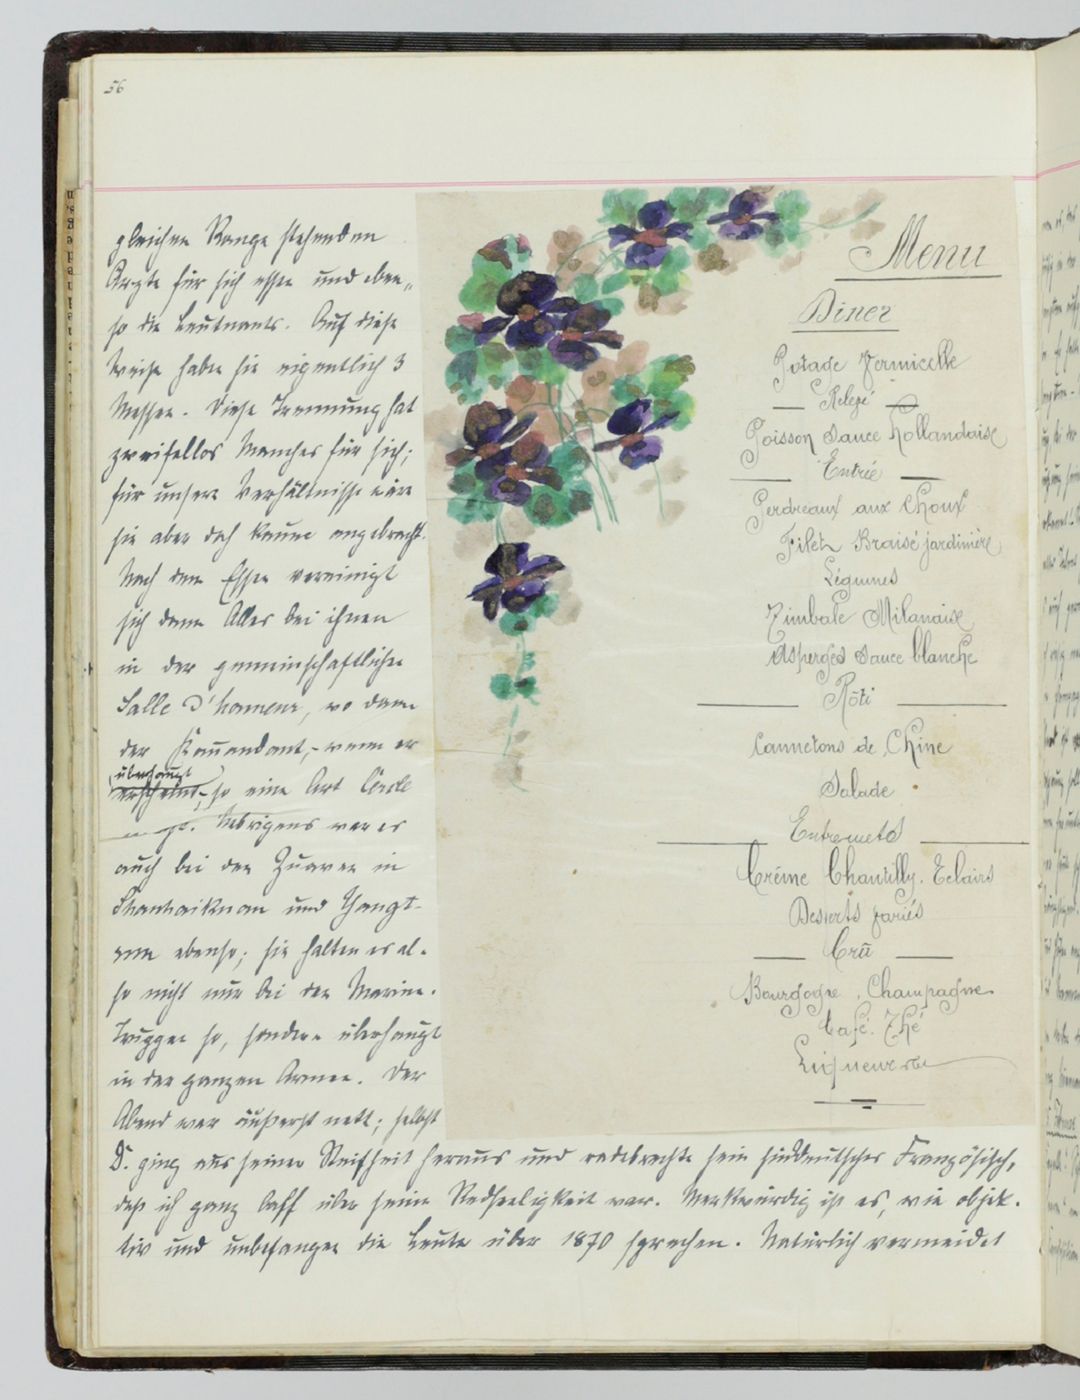 56
gleichen Range stehenden
Ärzte für sich essen und eben„
so die Leutnants. Auf diese
Weise haben sie eigentlich 3
Messen. Diese Trennung hat
zweifellos Manches für sich;
für unsere Verhältnisse wäre
sie aber doch kaum angebracht.
Nach dem Essen vereinigt
sich dann Alles bei ihnen
in der gemeinschaftlichen
Salle d'honneur, wo dann
der Komandant,- wenn er
überhaupt
erscheint,- so eine Art Cercle
Uebrigens war es
auch bei den Zuaven in
Shanhaikwan und Yangt-
sun ebenso; sie halten es al-
so nicht nur bei den Marine-
Truppen so, sondern überhaupt
in der ganzen Armee. Der
Abend war äußerst nett; selbst
D. ging aus seiner Steifheit heraus und radebrechte sein süddeutsches Französisch,
daß ich ganz baff über seine Redseeligkeit war. Merkwürdig ist es, wie objek-
tiv und unbefangen die Leute über 1870 sprechen. Natürlich vermeidet
Menu
Diner
Potade Vermicelle
Relevé
Poisson Sauce Hollandaise
Entrée
Perdreaux aux Choux
Filet Braisé jardinière
Légumes
Timbale Milanaise
Asperges Sauce blanche
Rôti
Cannetons de Chine
Salade
Entremets
Crème Chantilly. Eclairs
Desserts variés
Crû
Bourgogne, Champagne
Café. Thé
Liqueurs